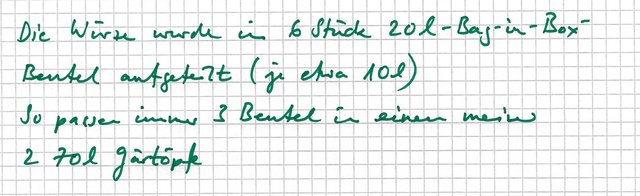 Die Würze wurde in 6 Stück 20l-Bag-in-Box-
Beutel aufgeteilt (je etwa 10l)
So passen immer 3 Beutel in einen meiner
2 70l Gärtöpfe